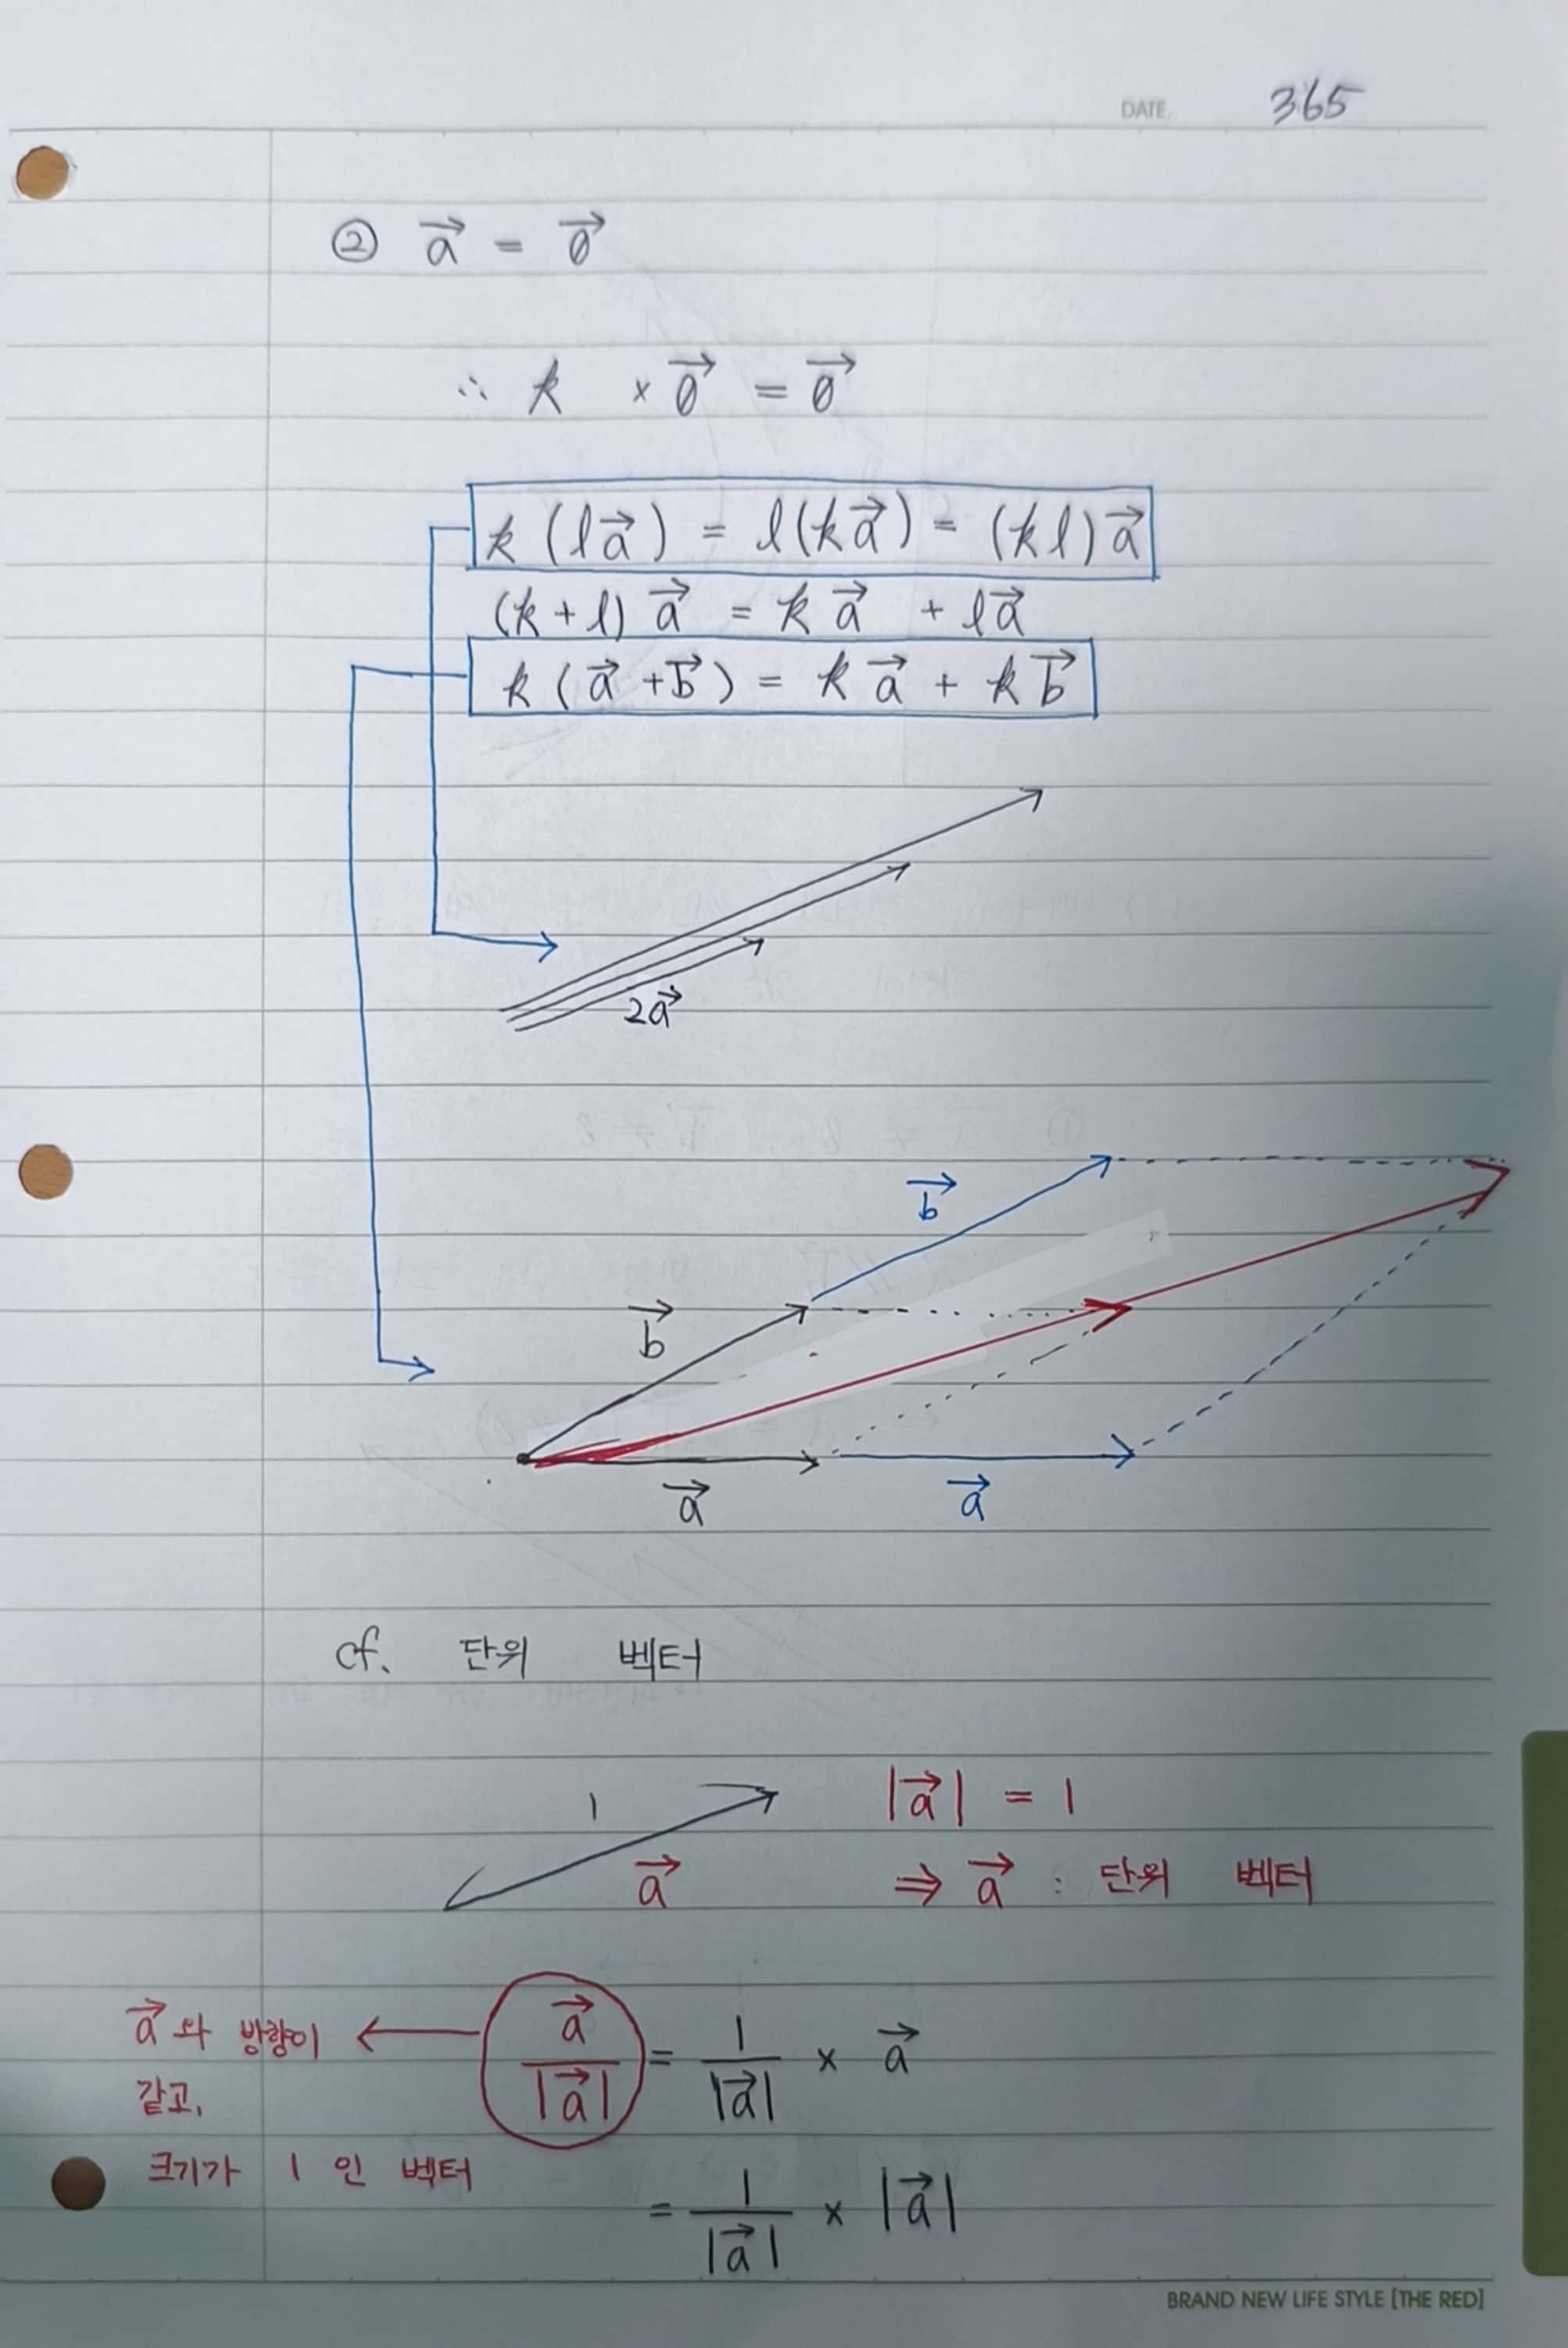 DATE. 365
② a⃗ = 0⃗
∴ k × 0⃗ = 0⃗
k (l a⃗) = l (k a⃗) = (k l) a⃗
(k + l) a⃗ = k a⃗ + l a⃗
k (a⃗ + b⃗) = k a⃗ + k b⃗
2a⃗
b⃗
b⃗
a⃗ a⃗
cf. 단위 벡터
1 |a⃗| = 1
a⃗ ⇒ a⃗ : 단위 벡터
a⃗ 와 방향이 ← a⃗/|a⃗| = 1/|a⃗| × a⃗
같고,
크기가 1 인 벡터
= 1/|a⃗| × |a⃗|
BRAND NEW LIFE STYLE [THE RED]